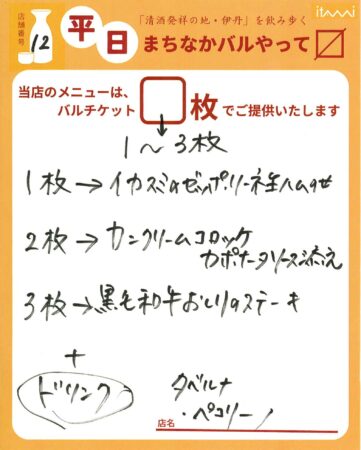 itami
店舗番号
12
平日
「清酒発祥の地・伊丹」を飲み歩く
まちなかバルやって
当店のメニューは、
バルチケット 枚でご提供いたします
1〜3枚
1枚→イカスミのゼッポリーネ生ハムのせ
2枚→カニクリームコロッケ
カポナータソース添え
3枚→黒毛和牛おしりのステーキ
+
ドリンク
タベルナ
・ペコリーノ
店名